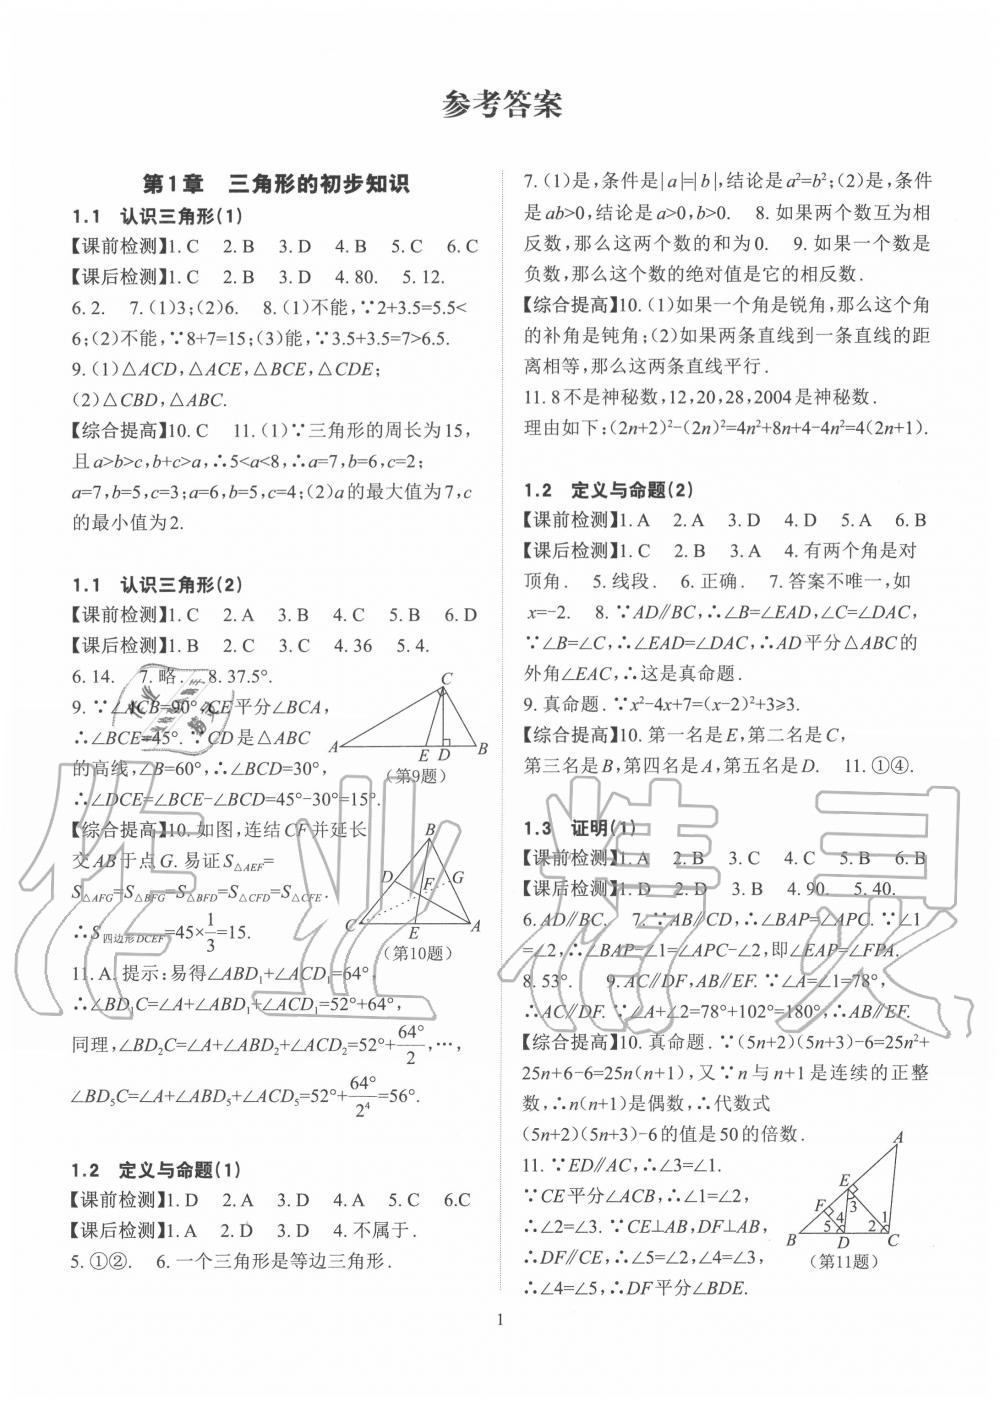 参考答案
第1章 三角形的初步知识
1.1 认识三角形(1)
【课前检测】1. C 2. B 3. D 4. B 5. C 6. C
【课后检测】1. C 2. D 3. D 4. 80. 5. 12.
6. 2. 7. (1)3;(2)6. 8. (1)不能,∵2+3.5=5.5<
6;(2)不能,∵8+7=15;(3)能,∵3.5+3.5=7>6.5.
9. (1)△ACD,△ACE,△BCE,△CDE;
(2)△CBD,△ABC.
【综合提高】10. C 11. (1)∵三角形的周长为15,
且a>b>c,b+c>a,∴5<a<8,∴a=7,b=6,c=2;
a=7,b=5,c=3;a=6,b=5,c=4;(2)a的最大值为7,c
的最小值为2.
1.1 认识三角形(2)
【课前检测】1. C 2. A 3. B 4. C 5. B 6. D
【课后检测】1. B 2. C 3. C 4. 36 5. 4.
6. 14. 7. 略. 8. 37.5°.
9. ∵∠ACB=90°,CE平分∠BCA,
∴∠BCE=45°. ∵CD是△ABC
的高线,∠B=60°,∴∠BCD=30°,
∴∠DCE=∠BCE-∠BCD=45°-30°=15°.
C
A E D B
(第9题)
【综合提高】10. 如图,连结CF并延长
交AB于点G. 易证S△AEF=
S△AFG=S△BFG=S△BFD=S△CFD=S△CFE.
∴S四边形DCEF=45×1/3=15.
B
D F G
C E A
(第10题)
11. A. 提示:易得∠ABD₁+∠ACD₁=64°,
∴∠BD₁C=∠A+∠ABD₁+∠ACD₁=52°+64°,
同理,∠BD₂C=∠A+∠ABD₂+∠ACD₂=52°+64°/2,…,
∠BD₅C=∠A+∠ABD₅+∠ACD₅=52°+64°/2⁴=56°.
1.2 定义与命题(1)
【课前检测】1. D 2. A 3. D 4. A 5. C 6.C
【课后检测】1. A 2. D 3. D 4. 不属于.
5. ①②. 6. 一个三角形是等边三角形.
7. (1)是,条件是|a|=|b|,结论是a²=b²;(2)是,条件
是ab>0,结论是a>0,b>0. 8. 如果两个数互为相
反数,那么这两个数的和为0. 9. 如果一个数是
负数,那么这个数的绝对值是它的相反数.
【综合提高】10. (1)如果一个角是锐角,那么这个角
的补角是钝角;(2)如果两条直线到一条直线的距
离相等,那么这两条直线平行.
11. 8不是神秘数,12,20,28,2004是神秘数.
理由如下:(2n+2)²-(2n)²=4n²+8n+4-4n²=4(2n+1).
1.2 定义与命题(2)
【课前检测】1. A 2. A 3. D 4. D 5. A 6. B
【课后检测】1. C 2. B 3. A 4. 有两个角是对
顶角. 5. 线段. 6. 正确. 7. 答案不唯一,如
x=-2. 8. ∵AD∥BC,∴∠B=∠EAD,∠C=∠DAC,
∵∠B=∠C,∴∠EAD=∠DAC,∴AD平分△ABC的
外角∠EAC,∴这是真命题.
9. 真命题. ∵x²-4x+7=(x-2)²+3≥3.
【综合提高】10. 第一名是E,第二名是C,
第三名是B,第四名是A,第五名是D. 11. ①④.
1.3 证明(1)
【课前检测】1. A 2. B 3. C 4. C 5. B 6. B
【课后检测】1. D 2. D 3. B 4. 90. 5. 40.
6. AD∥BC. 7. ∵AB∥CD,∴∠BAP=∠APC. ∵∠1
=∠2,∴∠BAP-∠1=∠APC-∠2,即∠EAP=∠FPA.
8. 53°. 9. AC∥DF,AB∥EF. ∵∠A=∠1=78°,
∴AC∥DF. ∵∠A+∠2=78°+102°=180°,∴AB∥EF.
【综合提高】10. 真命题. ∵(5n+2)(5n+3)-6=25n²+
25n+6-6=25n(n+1),又∵n与n+1是连续的正整
数,∴n(n+1)是偶数,∴代数式
(5n+2)(5n+3)-6的值是50的倍数.
11. ∵ED∥AC,∴∠3=∠1.
∵CE平分∠ACB,∴∠1=∠2,
∴∠2=∠3. ∵CE⊥AB,DF⊥AB,
∴DF∥CE,∴∠5=∠2,∠4=∠3,
∴∠4=∠5,∴DF平分∠BDE.
A
E
F 3
4 1
5 2
B D C
(第11题)
1
作业精灵